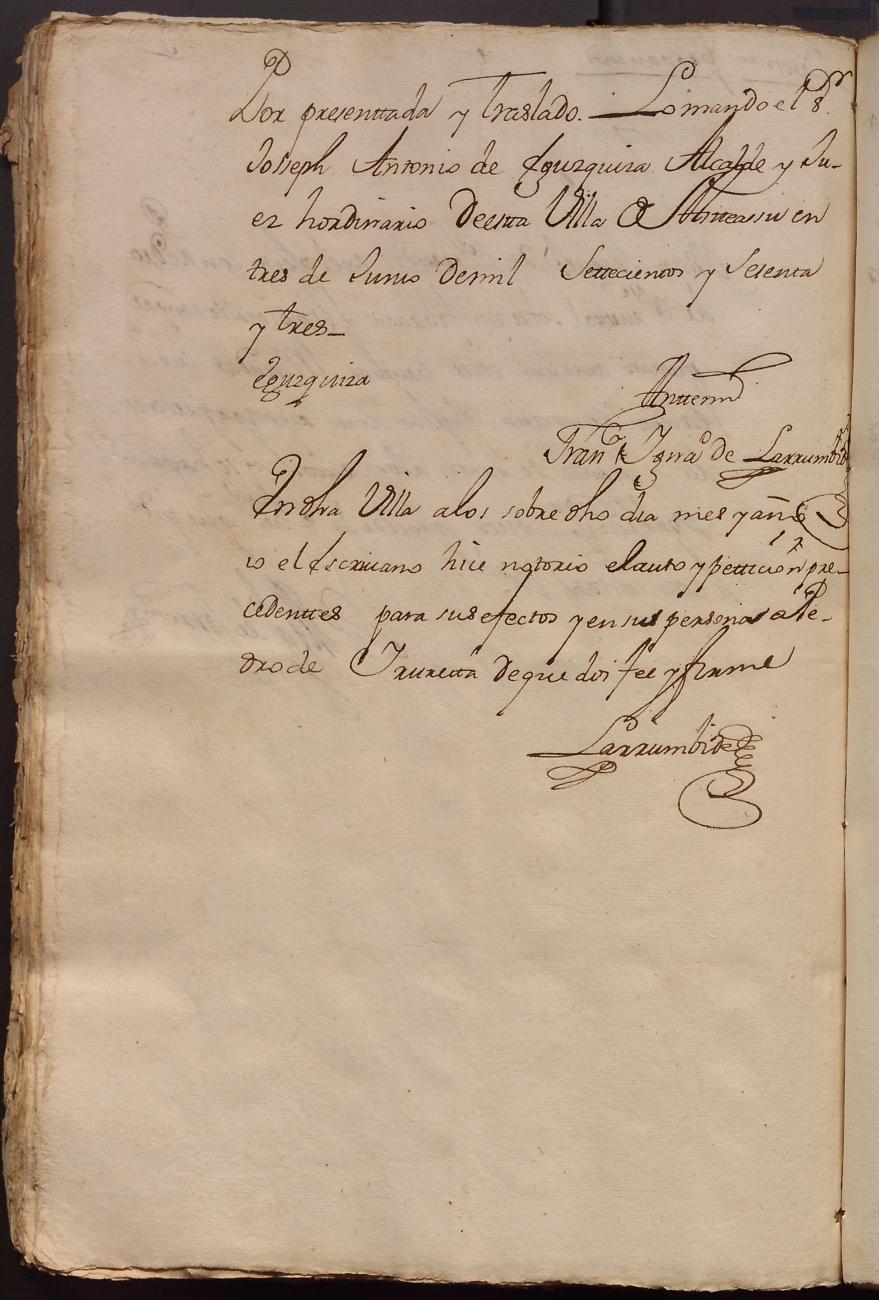 Por presenttada y traslado. Lo mando el Sr
Joseph Antonio de Eguzquiza Alcalde y Ju-
ez hordinario de estta Villa de en
tres de Junio de mil Settecientos y sesenta
y tres
Eguzquiza
Antte mi
Franco Ignao de Larrumbide
En dha Villa a los sobre dho dia mes y año
io el Escrivano hice notorio el auto y petticion pre-
cedenttes para sus efectos y en sus personas a Pe-
dro de Iruretta de que doi fee y firme
Larrumbide